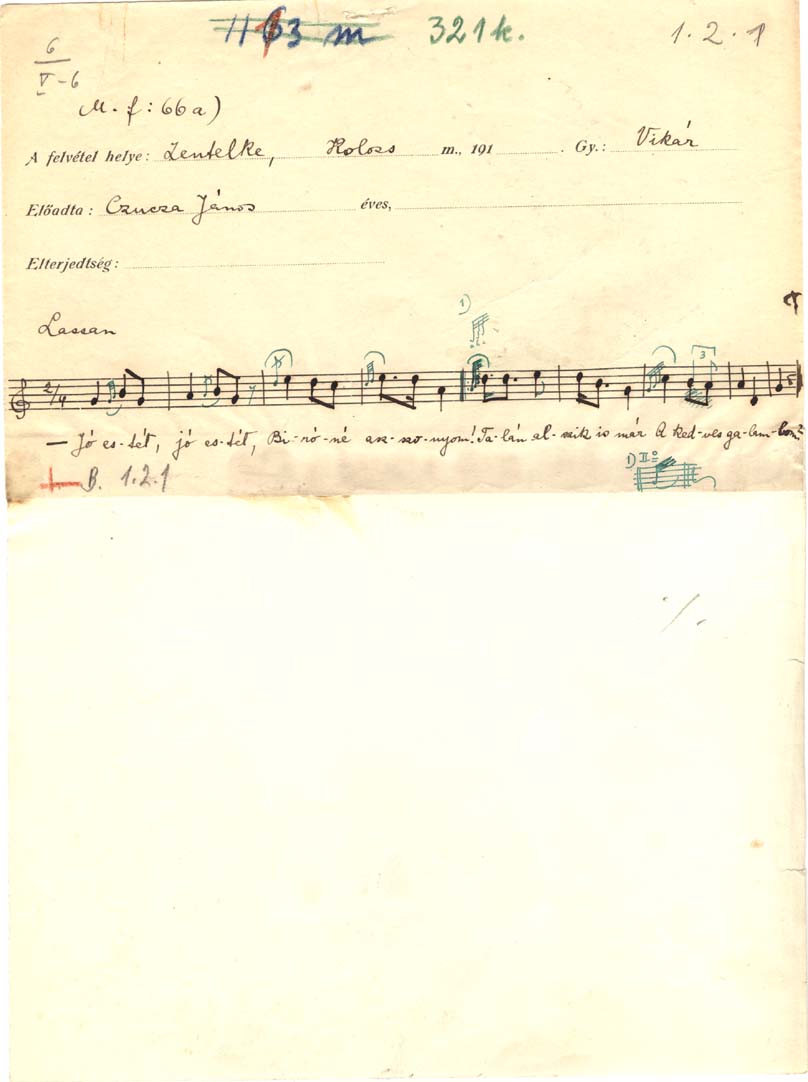 1163 m 321k. 1.2.1
6
V-6
M.f: 66a)
A felvétel helye: Zentelke, Kolozs m., 191 . Gy.: Vikár
Előadta: Czucza János éves,
Elterjedtség:
1)
Lassan
2/4 3
— Jó es-tét, jó es-tét, Bi-ró-né asz-szo-nyom! Ta-lán al-szik is már A ked-ves ga-lam-bom?
B. 1.2.1 1) II